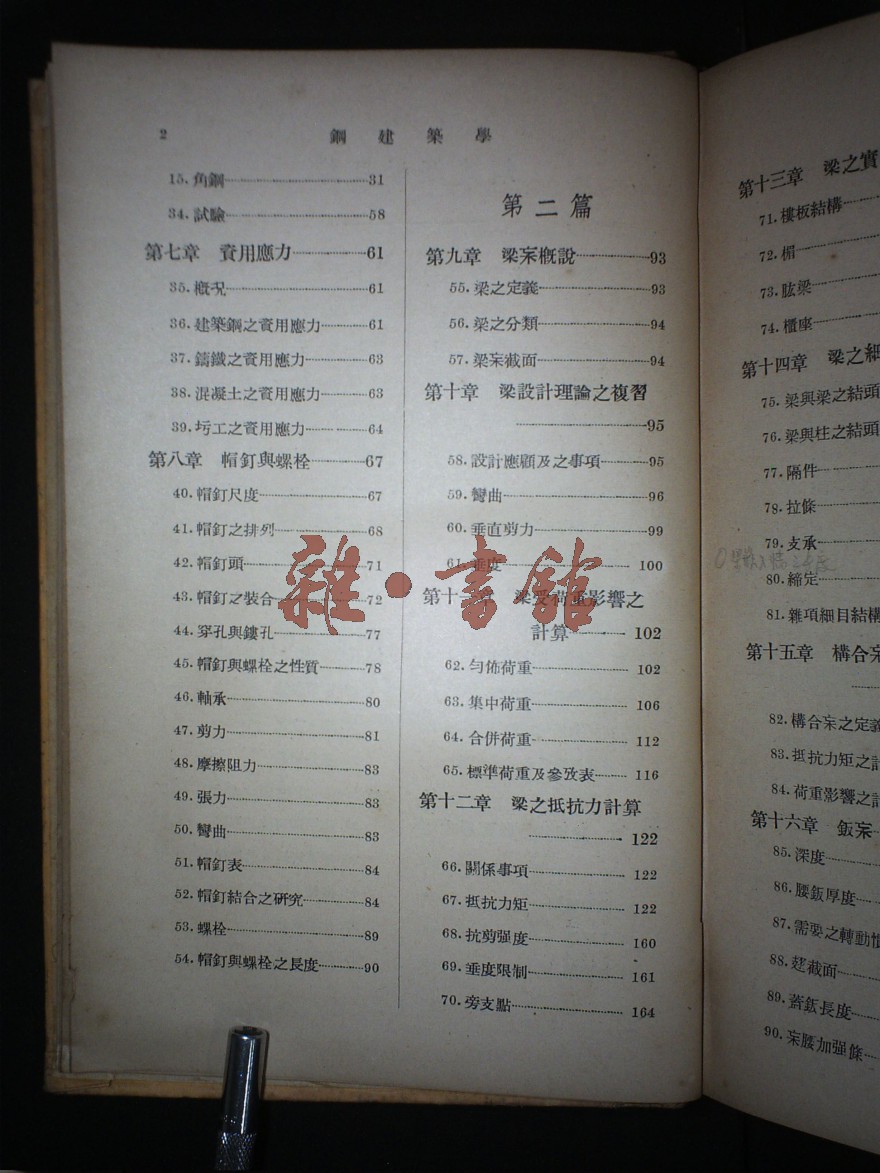 2
鋼建築學
15. 角鋼 31
34. 試驗 58
第七章 資用應力 61
35. 概况 61
36. 建築鋼之資用應力 61
37. 鑄鐵之資用應力 63
38. 混凝土之資用應力 63
39. 圬工之資用應力 64
第八章 帽釘與螺栓 67
40. 帽釘尺度 67
41. 帽釘之排列 68
42. 帽釘頭 71
43. 帽釘之裝合 72
44. 穿孔與鏤孔 77
45. 帽釘與螺栓之性質 78
46. 軸承 80
47. 剪力 81
48. 摩擦阻力 83
49. 張力 83
50. 彎曲 83
51. 帽釘表 84
52. 帽釘結合之研究 84
53. 螺栓 89
54. 帽釘與螺栓之長度 90
第二篇
第九章 梁宩槪說 93
55. 梁之定義 93
56. 梁之分類 94
57. 梁宩截面 94
第十章 梁設計理論之複習
95
58. 設計應顧及之事項 95
59. 彎曲 96
60. 垂直剪力 99
61. 垂度 100
第十一章 梁受荷重影響之
計算 102
62. 勻佈荷重 102
63. 集中荷重 106
64. 合併荷重 112
65. 標準荷重及參攷表 116
第十二章 梁之抵抗力計算
122
66. 關係事項 122
67. 抵抗力矩 122
68. 抗剪强度 160
69. 垂度限制 161
70. 旁支點 164
雜·書館
第十三章 梁之實
71. 樓板結構
72. 楣
73. 肱梁
74. 櫃座
第十四章 梁之細
75. 梁與梁之結頭
76. 梁與柱之結頭
77. 隔件
78. 拉條
79. 支承
80. 締定
81. 雜項細目結構
第十五章 構合宩
82. 構合宩之定義
83. 抵抗力矩之計
84. 荷重影響之計
第十六章 鈑宩
85. 深度
86. 腰鈑厚度
87. 需要之轉動慣
88. 趕截面
89. 蓋鈑長度
90. 宩腰加强條